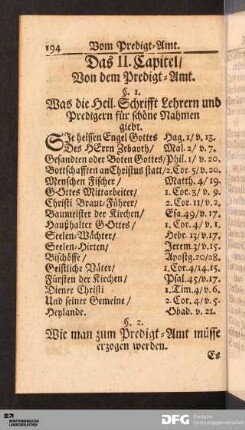 194 Vom Predigt-Amt.
Das II. Capitel/
Von dem Predigt-Amt.
§. 1.
Was die Heil. Schrifft Lehrern und
Predigern für schöne Nahmen
giebt.
SIe heissen Engel Gottes Hag. 1/ v. 13.
Des HErrn Zebaoth/ Mal. 2/ v. 7.
Gesandten oder Boten Gottes/ Phil. 1/ v. 20.
Bottschafften an Christus statt/ 2. Cor. 5/ v. 20.
Menschen Fischer/ Matth. 4/ 19.
GOttes Mittarbeiter/ 1. Cor. 3/ v. 9.
Christi Braut-Führer/ 2. Cor. 11/ v. 2.
Baumeister der Kirchen/ Esa. 49/ v. 17.
Haußhalter GOttes/ 1. Cor. 4/ v. 1.
Seelen-Wächter/ Hebr. 13/ v. 17.
Seelen-Hirten/ Jerem. 3/ v. 15.
Bischöffe/ Apostg. 20/ 28.
Geistliche Väter/ 1. Cor. 4/ 14. 15.
Fürsten der Kirchen/ Psal. 45/ v. 17.
Diener Christi 1. Tim. 4/ v. 6.
Und seiner Gemeine/ 2. Cor. 4/ v. 5.
Heylande. Obad. v. 21.
§. 2.
Wie man zum Predigt-Amt müsse
erzogen werden.
Es
DFG Deutsche
Forschungsgemeinschaft